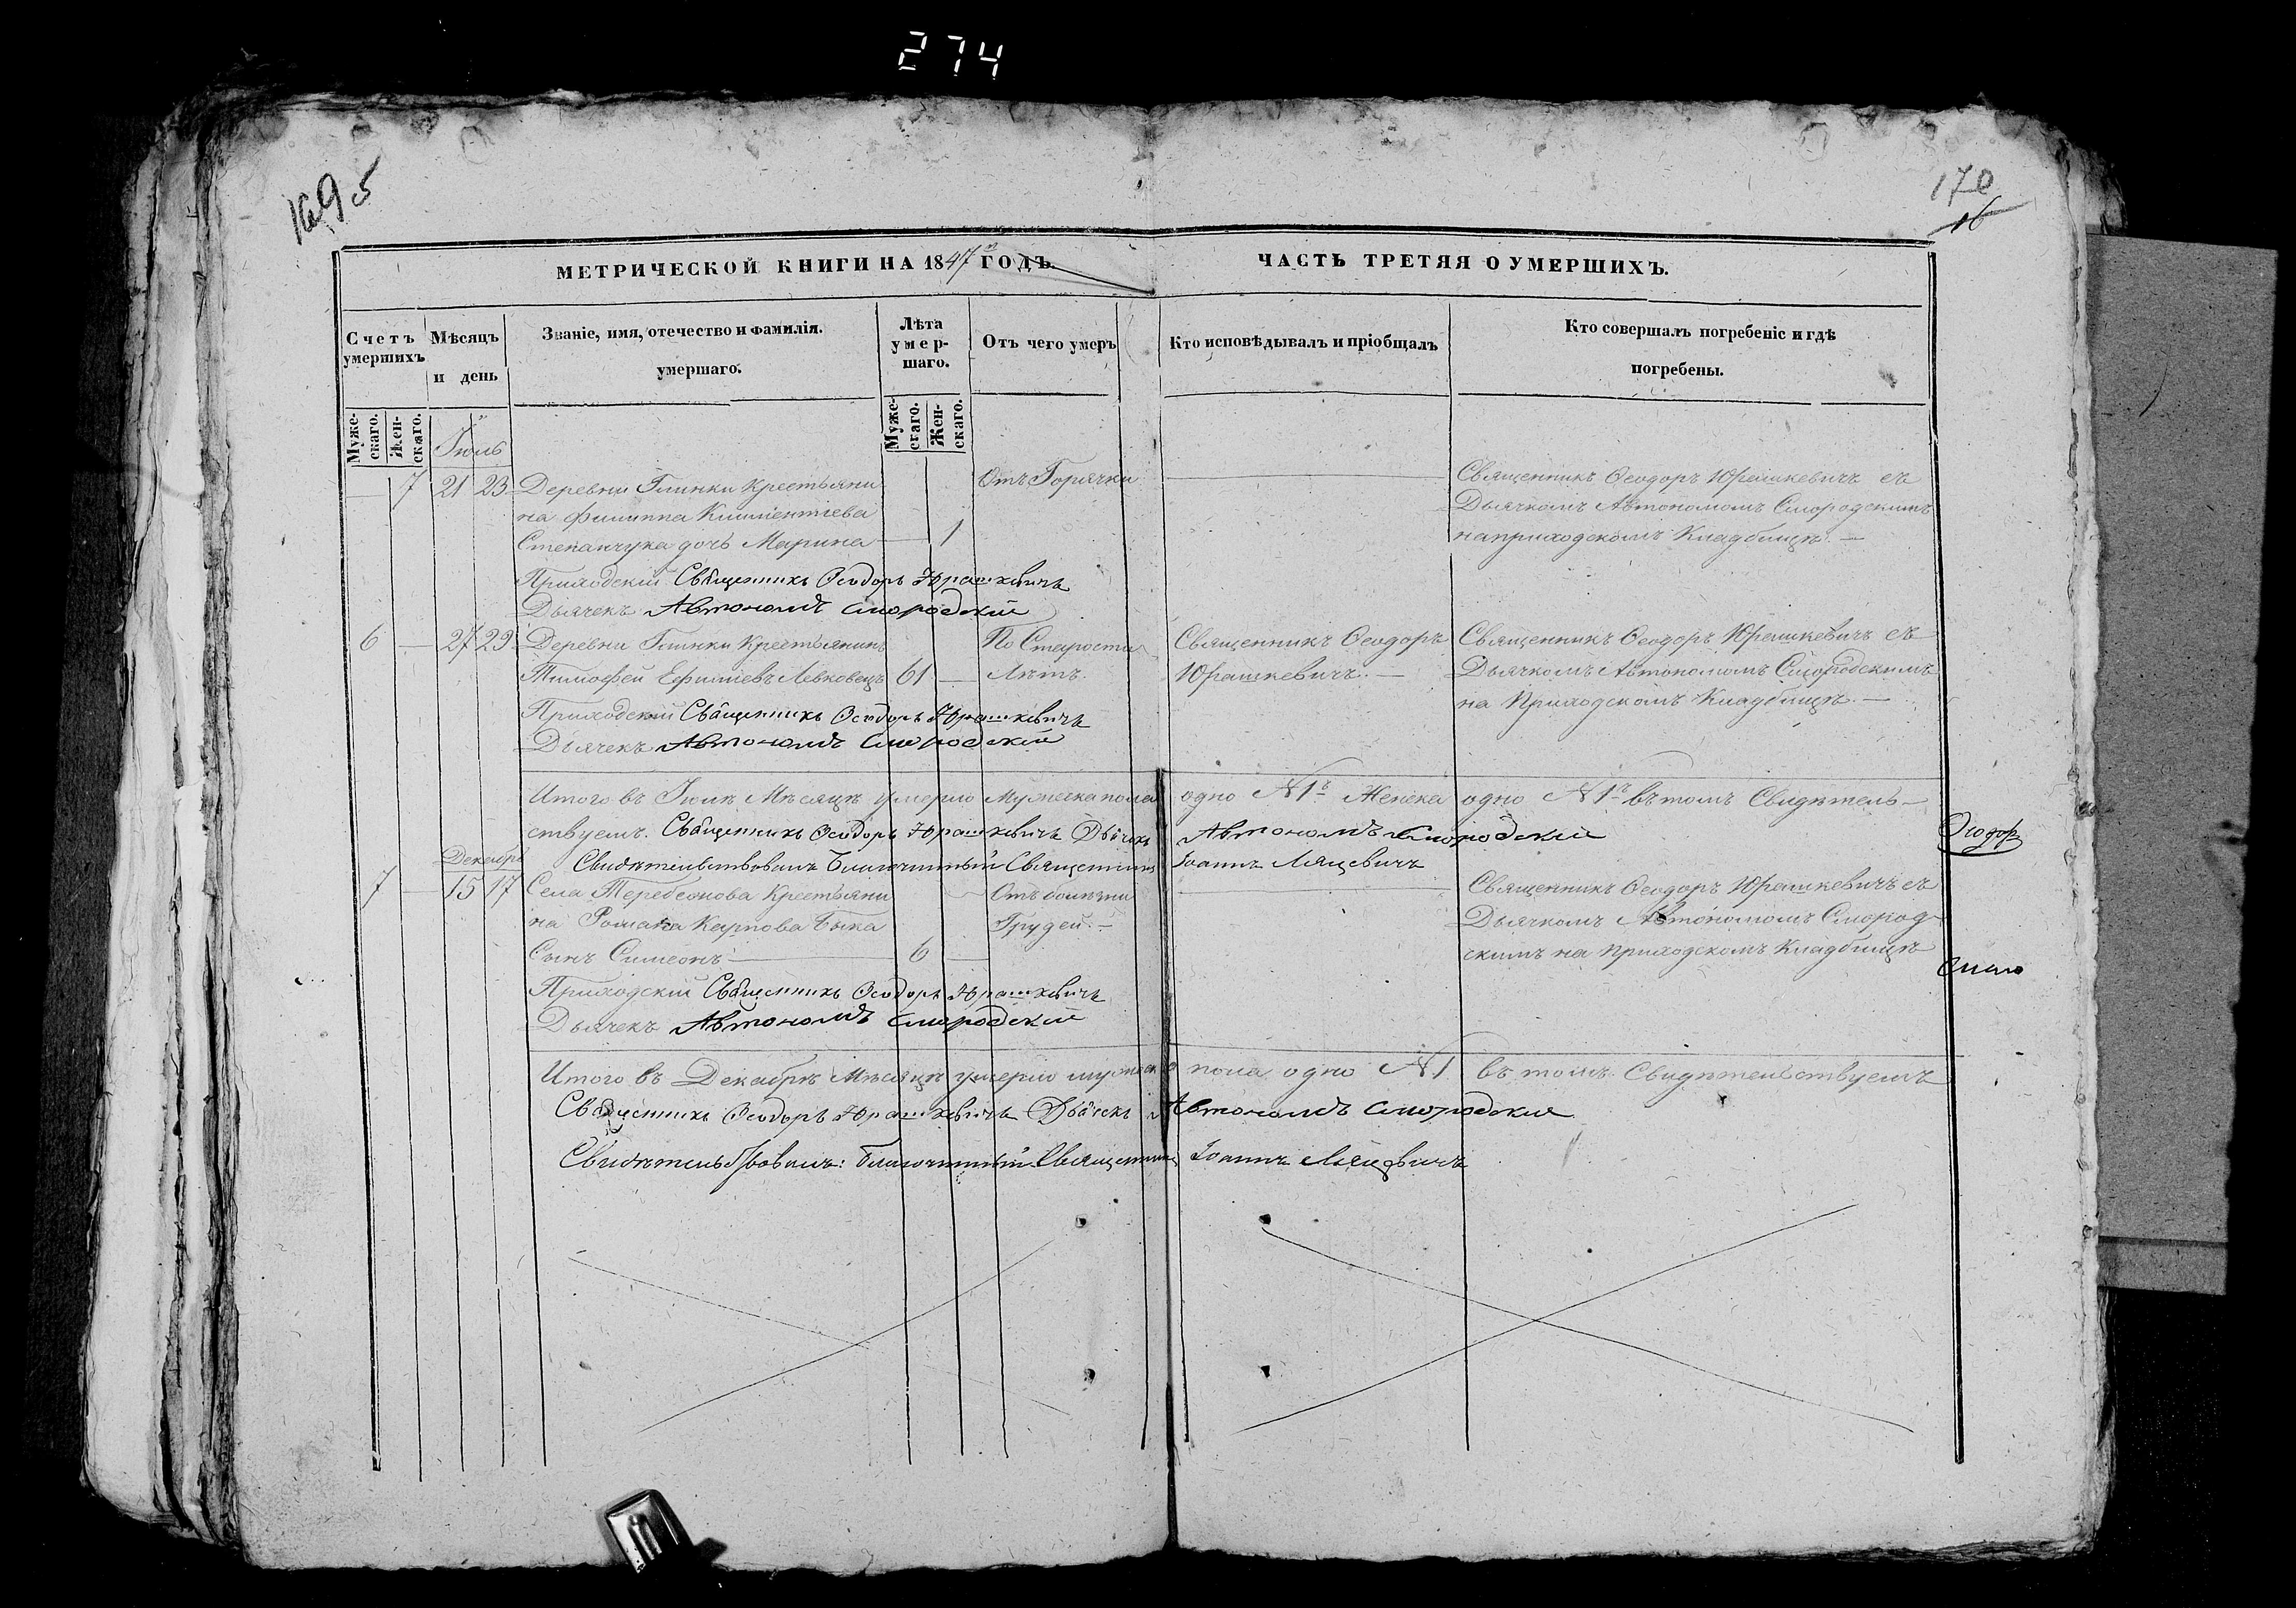 274
169 об
170
16
МЕТРИЧЕСКОЙ КНИГИ НА 1847 ГОДЪ.
ЧАСТЬ ТРЕТЯЯ О УМЕРШИХЪ.
Счетъ умершихъ
Мѣсяцъ и день
Званіе, имя, отечество и фамилія умершаго.
Лѣта умершаго.
Отъ чего умеръ
Кто исповѣдывалъ и пріобщалъ
Кто совершалъ погребеніе и гдѣ погребены.
Мужескаго. Женскаго.
Мужескаго. Женскаго.
Іюль
7 21 23 Деревни Глинки Крестьяни Отъ Горячки Священникъ Ѳеодоръ Юрашкевичъ съ
на Филиппа Климентіева Дьячкомъ Автономомъ Смородскимъ
Степанчука дочь Марина 1 на приходскомъ Кладбищѣ. —
Приходскій Священникъ Ѳеодоръ Юрашкевичъ
Дьячекъ Автономъ Смородскій
6 — 27 29 Деревни Глинки Крестьянинъ По Старости Священникъ Ѳеодоръ Священникъ Ѳеодоръ Юрашкевичъ съ
Тимофей Ефимовъ Левковецъ 61 — Лѣтъ. Юрашкевичъ. — Дьячкомъ Автономомъ Смородскимъ
на Приходскомъ Кладбищѣ. —
Приходскій Священникъ Ѳеодоръ Юрашкевичъ
Дьячекъ Автономъ Смородскій
Итого въ Іюлѣ Мѣсяцѣ умерло Мужеска пола одно №1ъ Женска одно №1ъ въ томъ Свидѣтель—
ствуемъ. Священникъ Ѳеодоръ Юрашкевичъ Дьячекъ Автономъ Смородскій
Ѳеодор
Декабрь
Свидѣтельствовалъ Благочинный Священникъ Іоаннъ Ляцевичъ
7 — 15 17 Села Теребежова Крестьяни Отъ болѣзни Священникъ Ѳеодоръ Юрашкевичъ съ
на Романа Карпова Быка Грудей. — Дьячкомъ Автономомъ Смород
Сынъ Симеонъ 6 — скимъ на приходскомъ Кладбищѣ
Приходскій Священникъ Ѳеодоръ Юрашкевичъ
Дьячекъ Автономъ Смородскій
Итого въ Декабрѣ Мѣсяцѣ умерло мужеска пола одно №1 въ томъ Свидѣтельствуемъ
Священникъ Ѳеодоръ Юрашкевичъ Дьячекъ Автономъ Смородскій
Свидѣтельствовалъ: Благочинный Священникъ Іоаннъ Ляцевичъ